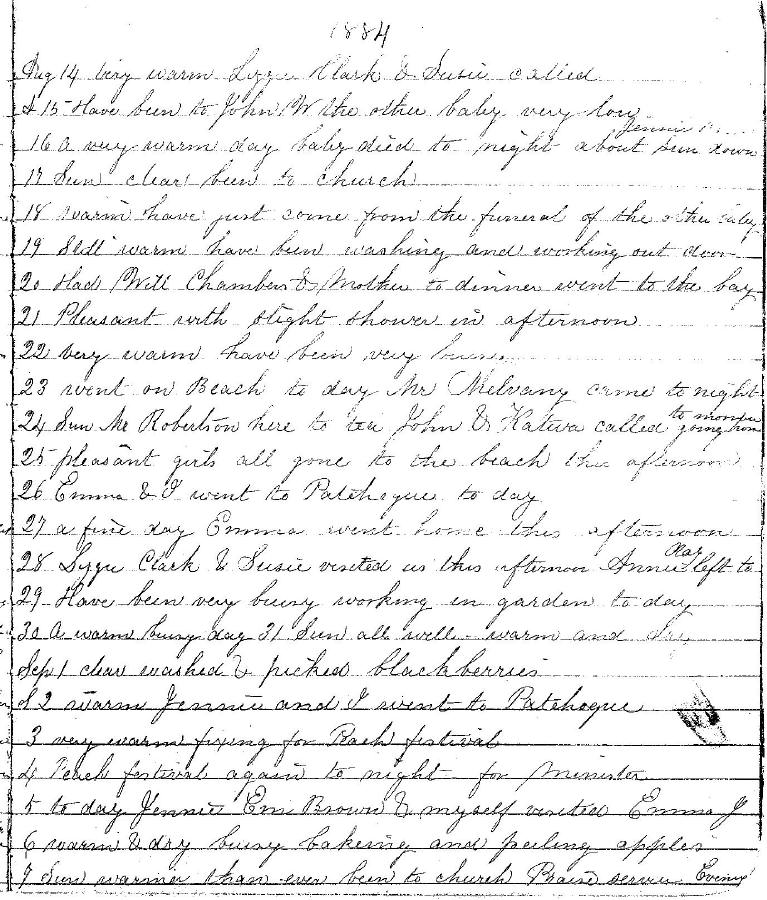 1884
Aug 14 very warm Lyzzie Clark & Susie called
A 15 Have been to John W the other baby very low
Jennie
16 a very warm day baby died to night about sun down
17 Sun clear been to church
18 warm have just come from the funeral of the other baby
19 Still warm have been washing and working out door
20 Had Will Chambers & Mother to dinner went to the bay
21 Pleasant with slight shower in afternoon
22 very warm have been very busy
23 went on Beach to day Mr Melvany came to night
24 Sun Mr Robertson here to tea John & Kateva called to
25 pleasant girls all gone to the beach this afternoon
26 Emma & I went to Patchogue to day
27 a fine day Emma went home this afternoon
28 Lyzzie Clark & Susie visited us this afternoon Annie left to
29 Have been very busy working in garden to day
30 A warm busy day 31 Sun all well - warm and dry
Sep 1 clear washed & picked blackberries
S 2 warm Jennie and I went to Patchogue
3 very warm fixing for Peach festival
4 Peach festival again to night for Minister
5 to day Jennie Em Brown & myself visited Emma J
6 warm & dry busy bakeing and peeling apples
7 Sun warmer than ever been to church Praise service Evening